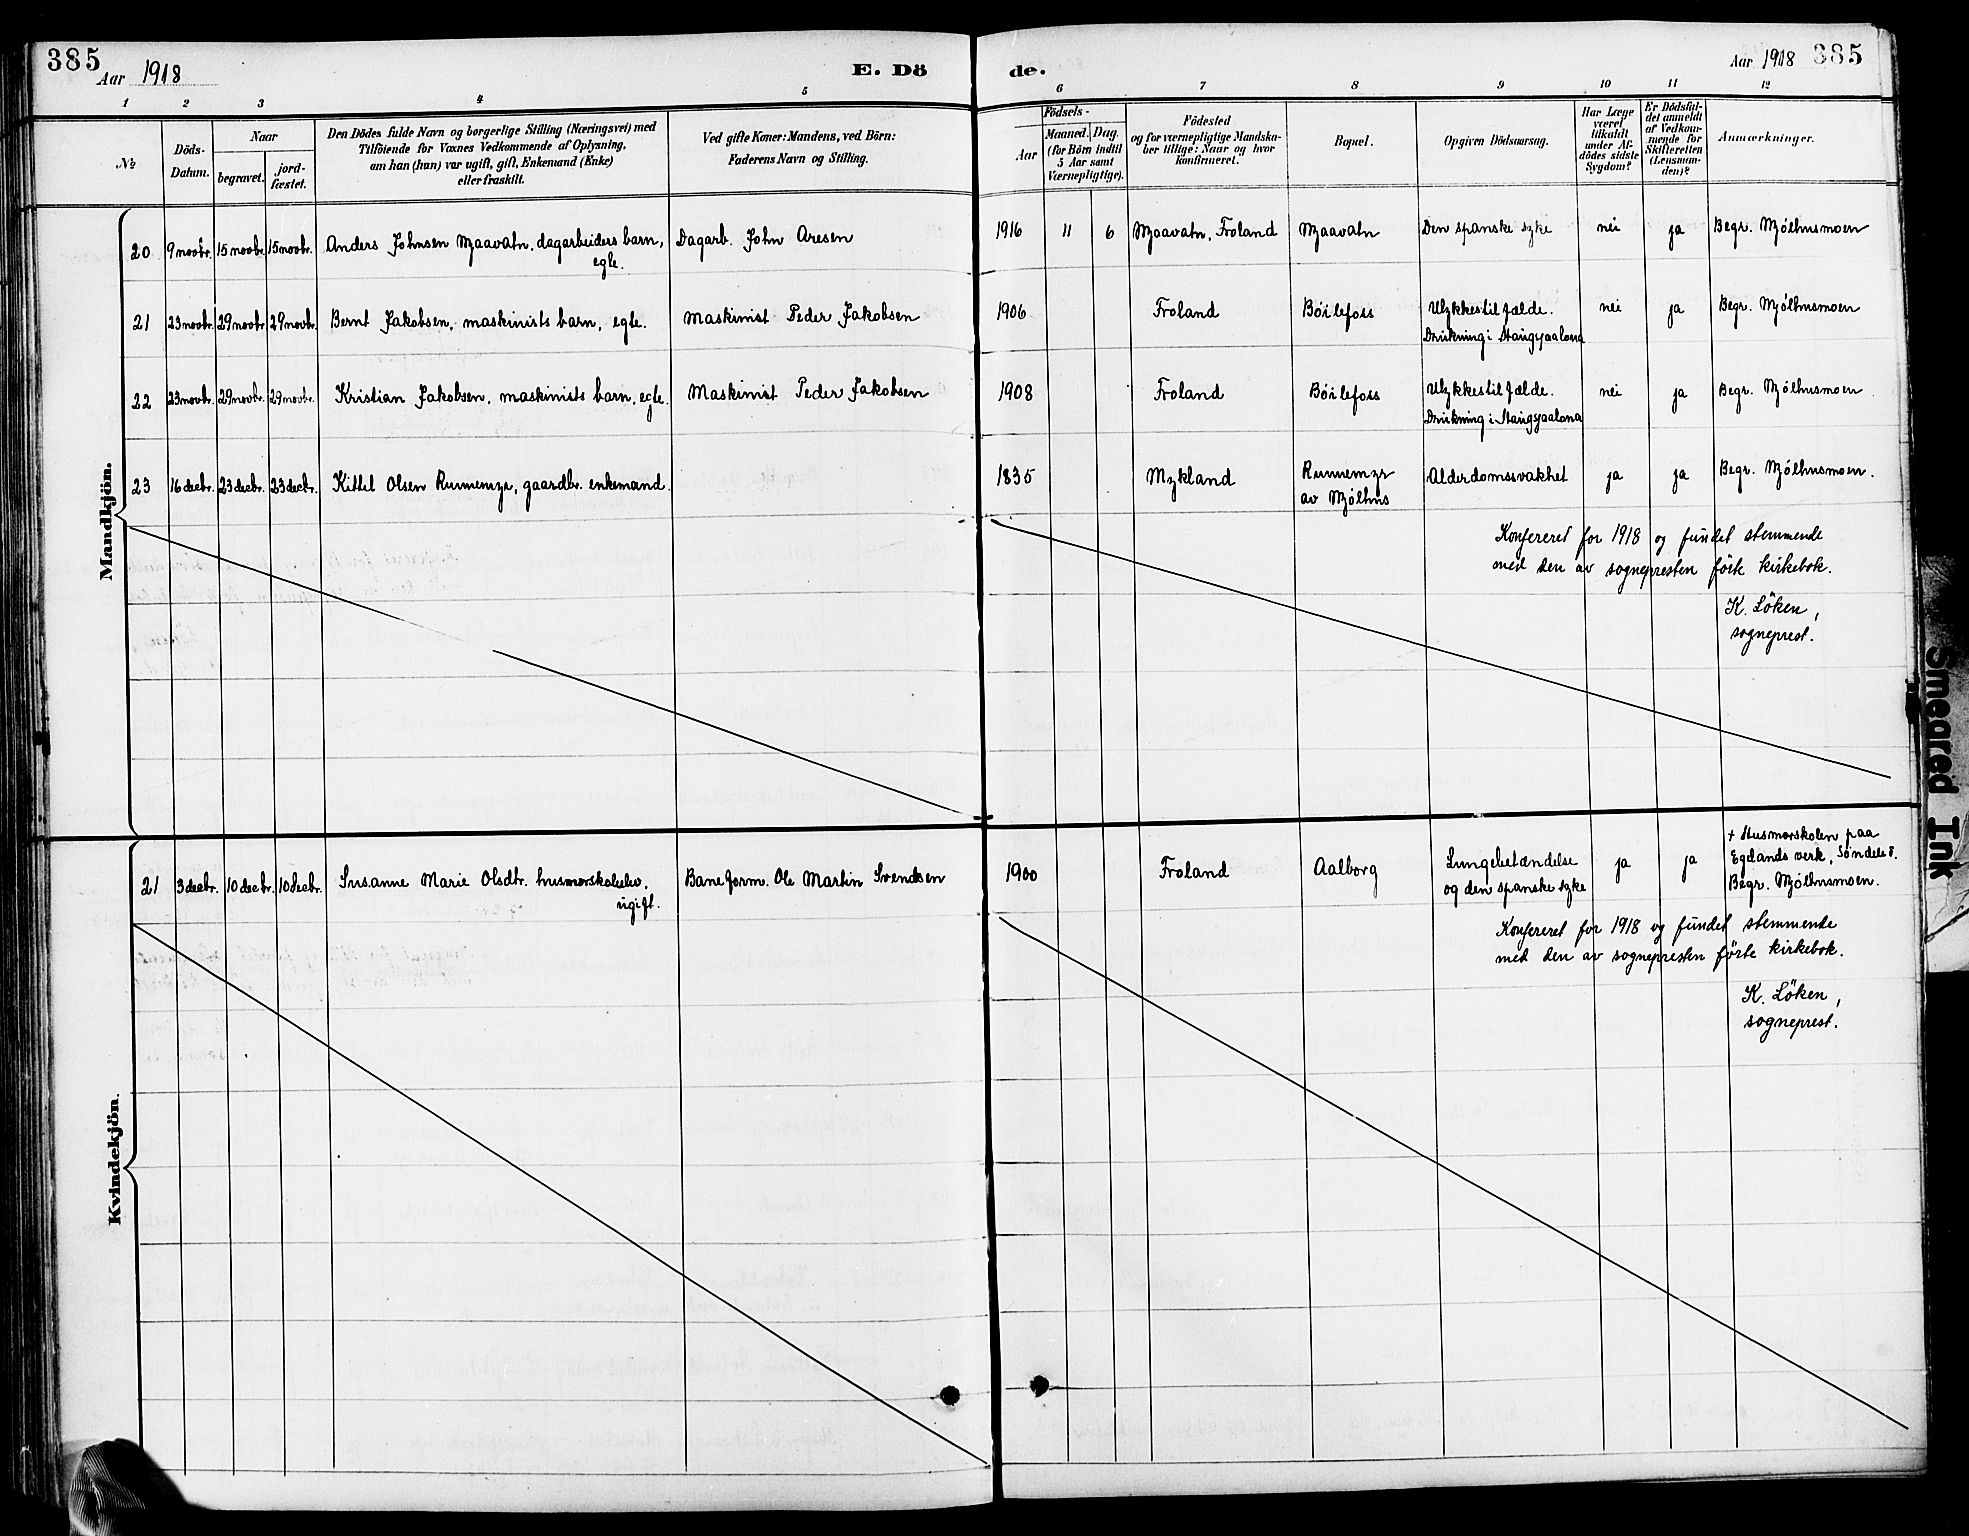 385
Aar 1918
E. Dö
de.
Aar 1918 385
1 2 3 4 5 6 7 8 9 10 11 12
№
Döds-
Datum.
Naar
begravet.
jord-
fæstet.
Den Dödes fulde Navn og borgerlige Stilling (Næringsvei) med
Tilföiende for Voxnes Vedkommende af Oplysning,
om han (hun) var ugift, gift, Enkemand (Enke)
eller fraskilt.
Ved gifte Koner: Mandens, ved Börn:
Faderens Navn og Stilling.
Födsels-
Aar
Maaned. Dag.
(for Börn indtil
5 Aar samt
Værnepligtige).
Födested
og for værnepligtige Mandska-
ber tillige: Naar og hvor
konfirmeret.
Bopæl.
Opgiven Dödsaarsag.
Har Læge
været
tilkaldt
under Af-
dödes sidste
Sygdom?
Er Dödsfal-
det anmeldt
af Vedkom-
mende for
Skifteretten
(Lensman-
den)?
Anmærkninger.
Mandkjön.
20 9 novbr. 15 novbr. 15 novbr. Anders Johnsen Mjaavatn, dagarbeiders barn, egte. Dagarb. John Aresen 1916 11 6 Mjaavatn, Froland Mjaavatn Den spanske syke nei ja Begr. Mjölhusmoen
21 23 novbr. 29 novbr. 29 novbr. Bernt Jakobsen, maskinists barn, egte. Maskinist Peder Jakobsen 1906 Froland Böilefoss Ulykkestilfælde. nei ja Begr. Mjölhusmoen
Drukning i
22 23 novbr. 29 novbr. 29 novbr. Kristian Jakobsen, maskinists barn, egte. Maskinist Peder Jakobsen 1908 Froland Böilefoss Ulykkestilfælde. nei ja Begr. Mjölhusmoen
Drukning i
23 16 decbr. 23 decbr. 23 decbr. Kittel Olsen Runnemyr, gaardbr. enkemand. 1835 Mykland Runnemyr Alderdomssvakhet ja ja Begr. Mjölhusmoen.
av Mjölhus
Konfereret for 1918 og fundet stemmende
med den av sognepresten förte kirkebok.
K. Löken,
sogneprest.
Kvindekjön.
21 3 decbr. 10 decbr. 10 decbr. Susanne Marie Olsdtr. husmorskoleelev, ugift. Baneform. Ole Martin Svendsen 1900 Froland Aalborg Lungebetændelse ja ja + Husmorskolen paa
og den spanske syke Egelands verk, Söndeled.
Begr. Mjölhusmoen.
Konfereret for 1918 og fundet stemmende
med den av sognepresten förte kirkebok.
K. Löken,
sogneprest.
Smeared Ink